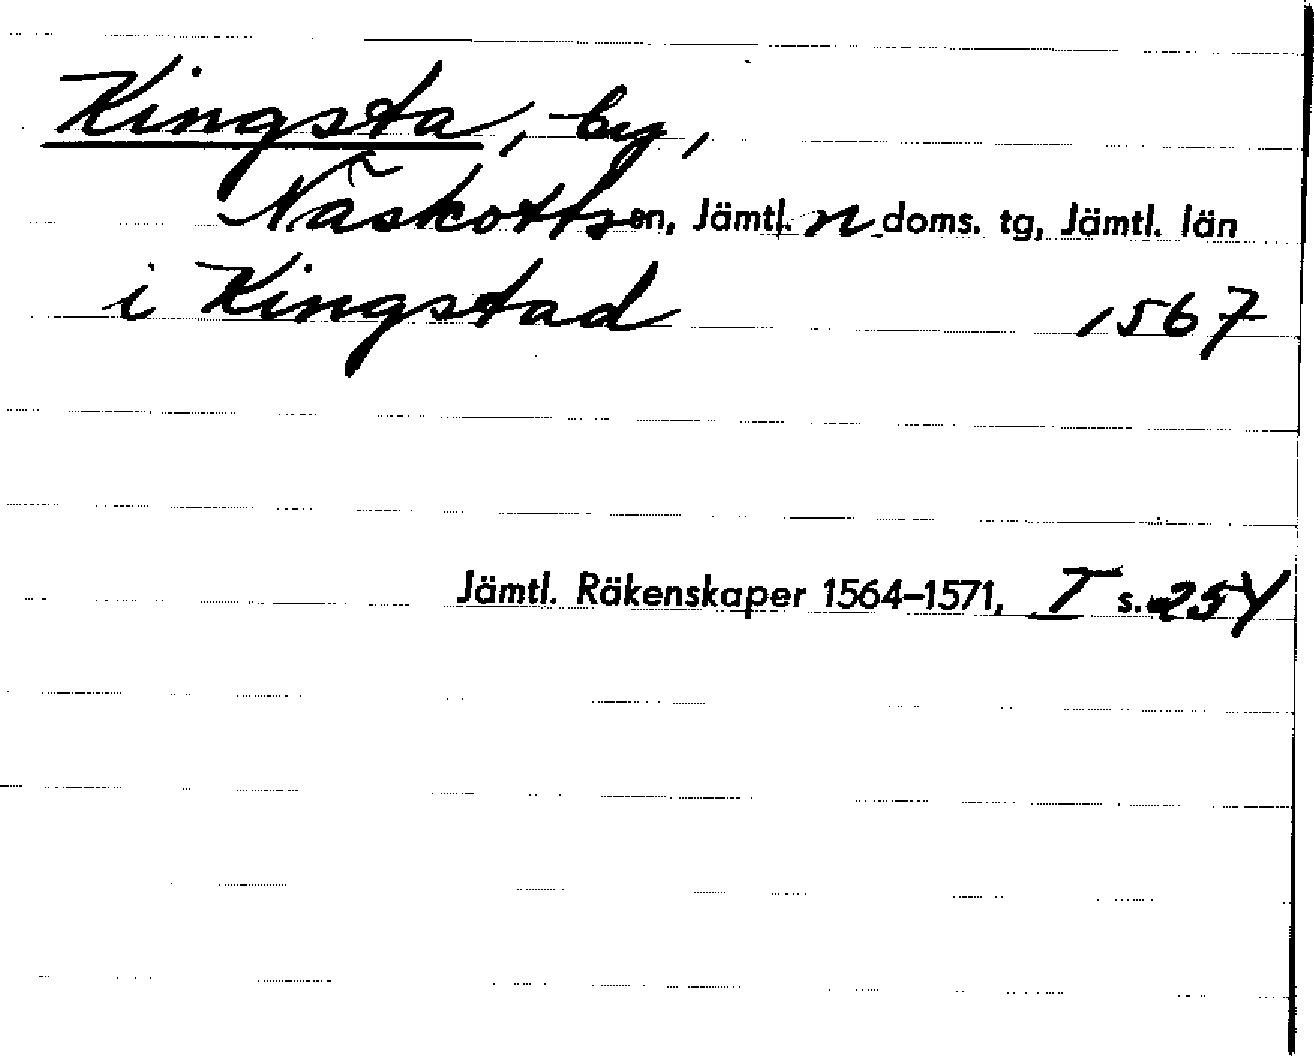 Kingsta, by,
Näskotts sn, Jämtl. n doms. tg, Jämtl. län
i Kingstad 1567
Jämtl. Räkenskaper 1564–1571, I s. 254